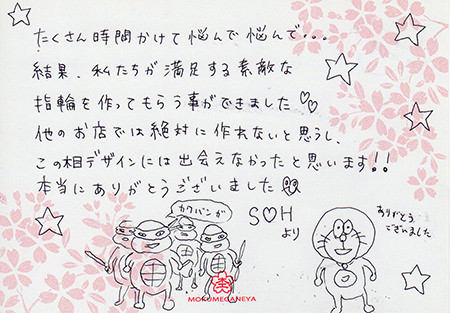 たくさん時間かけて悩んで悩んで...
結果、私たちが満足する素敵な
指輪を作ってもらう事ができました♡♡
他のお店では絶対に作れないと思うし、
この相デザインには出会えなかったと思います!!
本当にありがとうございました
カワバンガ
S♡H
より
ありがとう
ございました
MOKUMEGANEYA